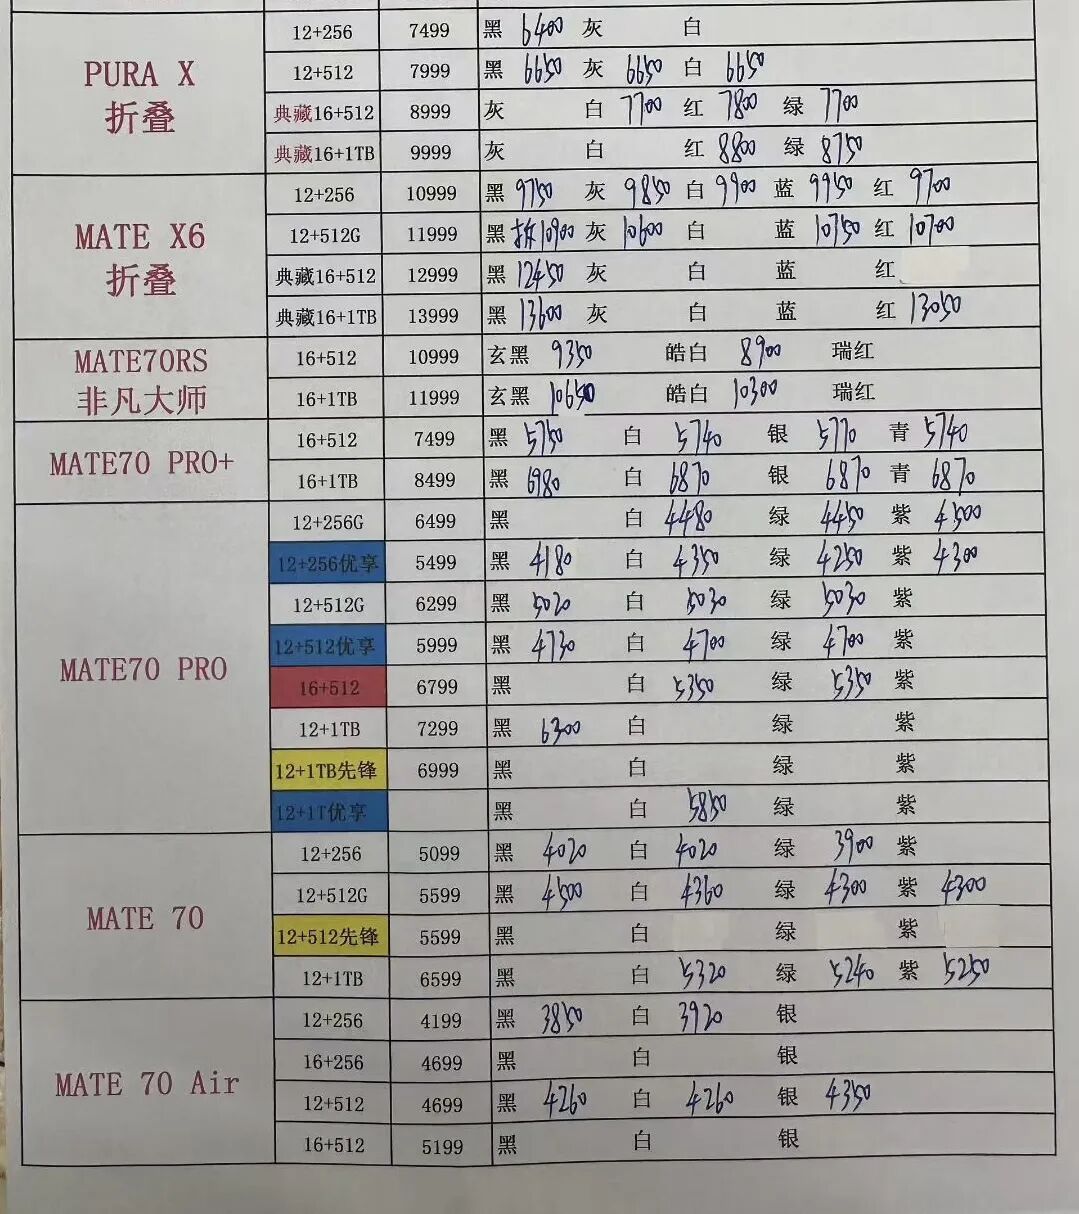 PURA X
折叠
12+256 7499 黑 6400 灰 白
12+512 7999 黑 6650 灰 6650 白 6650
典藏16+512 8999 灰 白 7700 红 7800 绿 7700
典藏16+1TB 9999 灰 白 红 8800 绿 8750
MATE X6
折叠
12+256 10999 黑 9750 灰 9850 白 9900 蓝 9950 红 9700
12+512G 11999 黑 拆10900 灰 10600 白 蓝 10750 红 10700
典藏16+512 12999 黑 12450 灰 白 蓝 红
典藏16+1TB 13999 黑 13600 灰 白 蓝 红 13050
MATE70RS
非凡大师
16+512 10999 玄黑 9350 皓白 8900 瑞红
16+1TB 11999 玄黑 10650 皓白 10300 瑞红
MATE70 PRO+
16+512 7499 黑 5750 白 5740 银 5770 青 5740
16+1TB 8499 黑 6980 白 6870 银 6870 青 6870
MATE70 PRO
12+256G 6499 黑 白 4480 绿 4450 紫 4500
12+256优享 5499 黑 4180 白 4350 绿 4250 紫 4300
12+512G 6299 黑 5020 白 5030 绿 5030 紫
12+512优享 5999 黑 4730 白 4700 绿 4700 紫
16+512 6799 黑 白 5350 绿 5350 紫
12+1TB 7299 黑 6300 白 绿 紫
12+1TB先锋 6999 黑 白 绿 紫
12+1T优享 黑 白 5850 绿 紫
MATE 70
12+256 5099 黑 4020 白 4020 绿 3900 紫
12+512G 5599 黑 4500 白 4360 绿 4300 紫 4300
12+512先锋 5599 黑 白 绿 紫
12+1TB 6599 黑 白 5320 绿 5240 紫 5250
MATE 70 Air
12+256 4199 黑 3850 白 3920 银
16+256 4699 黑 白 银
12+512 4699 黑 4260 白 4260 银 4350
16+512 5199 黑 白 银